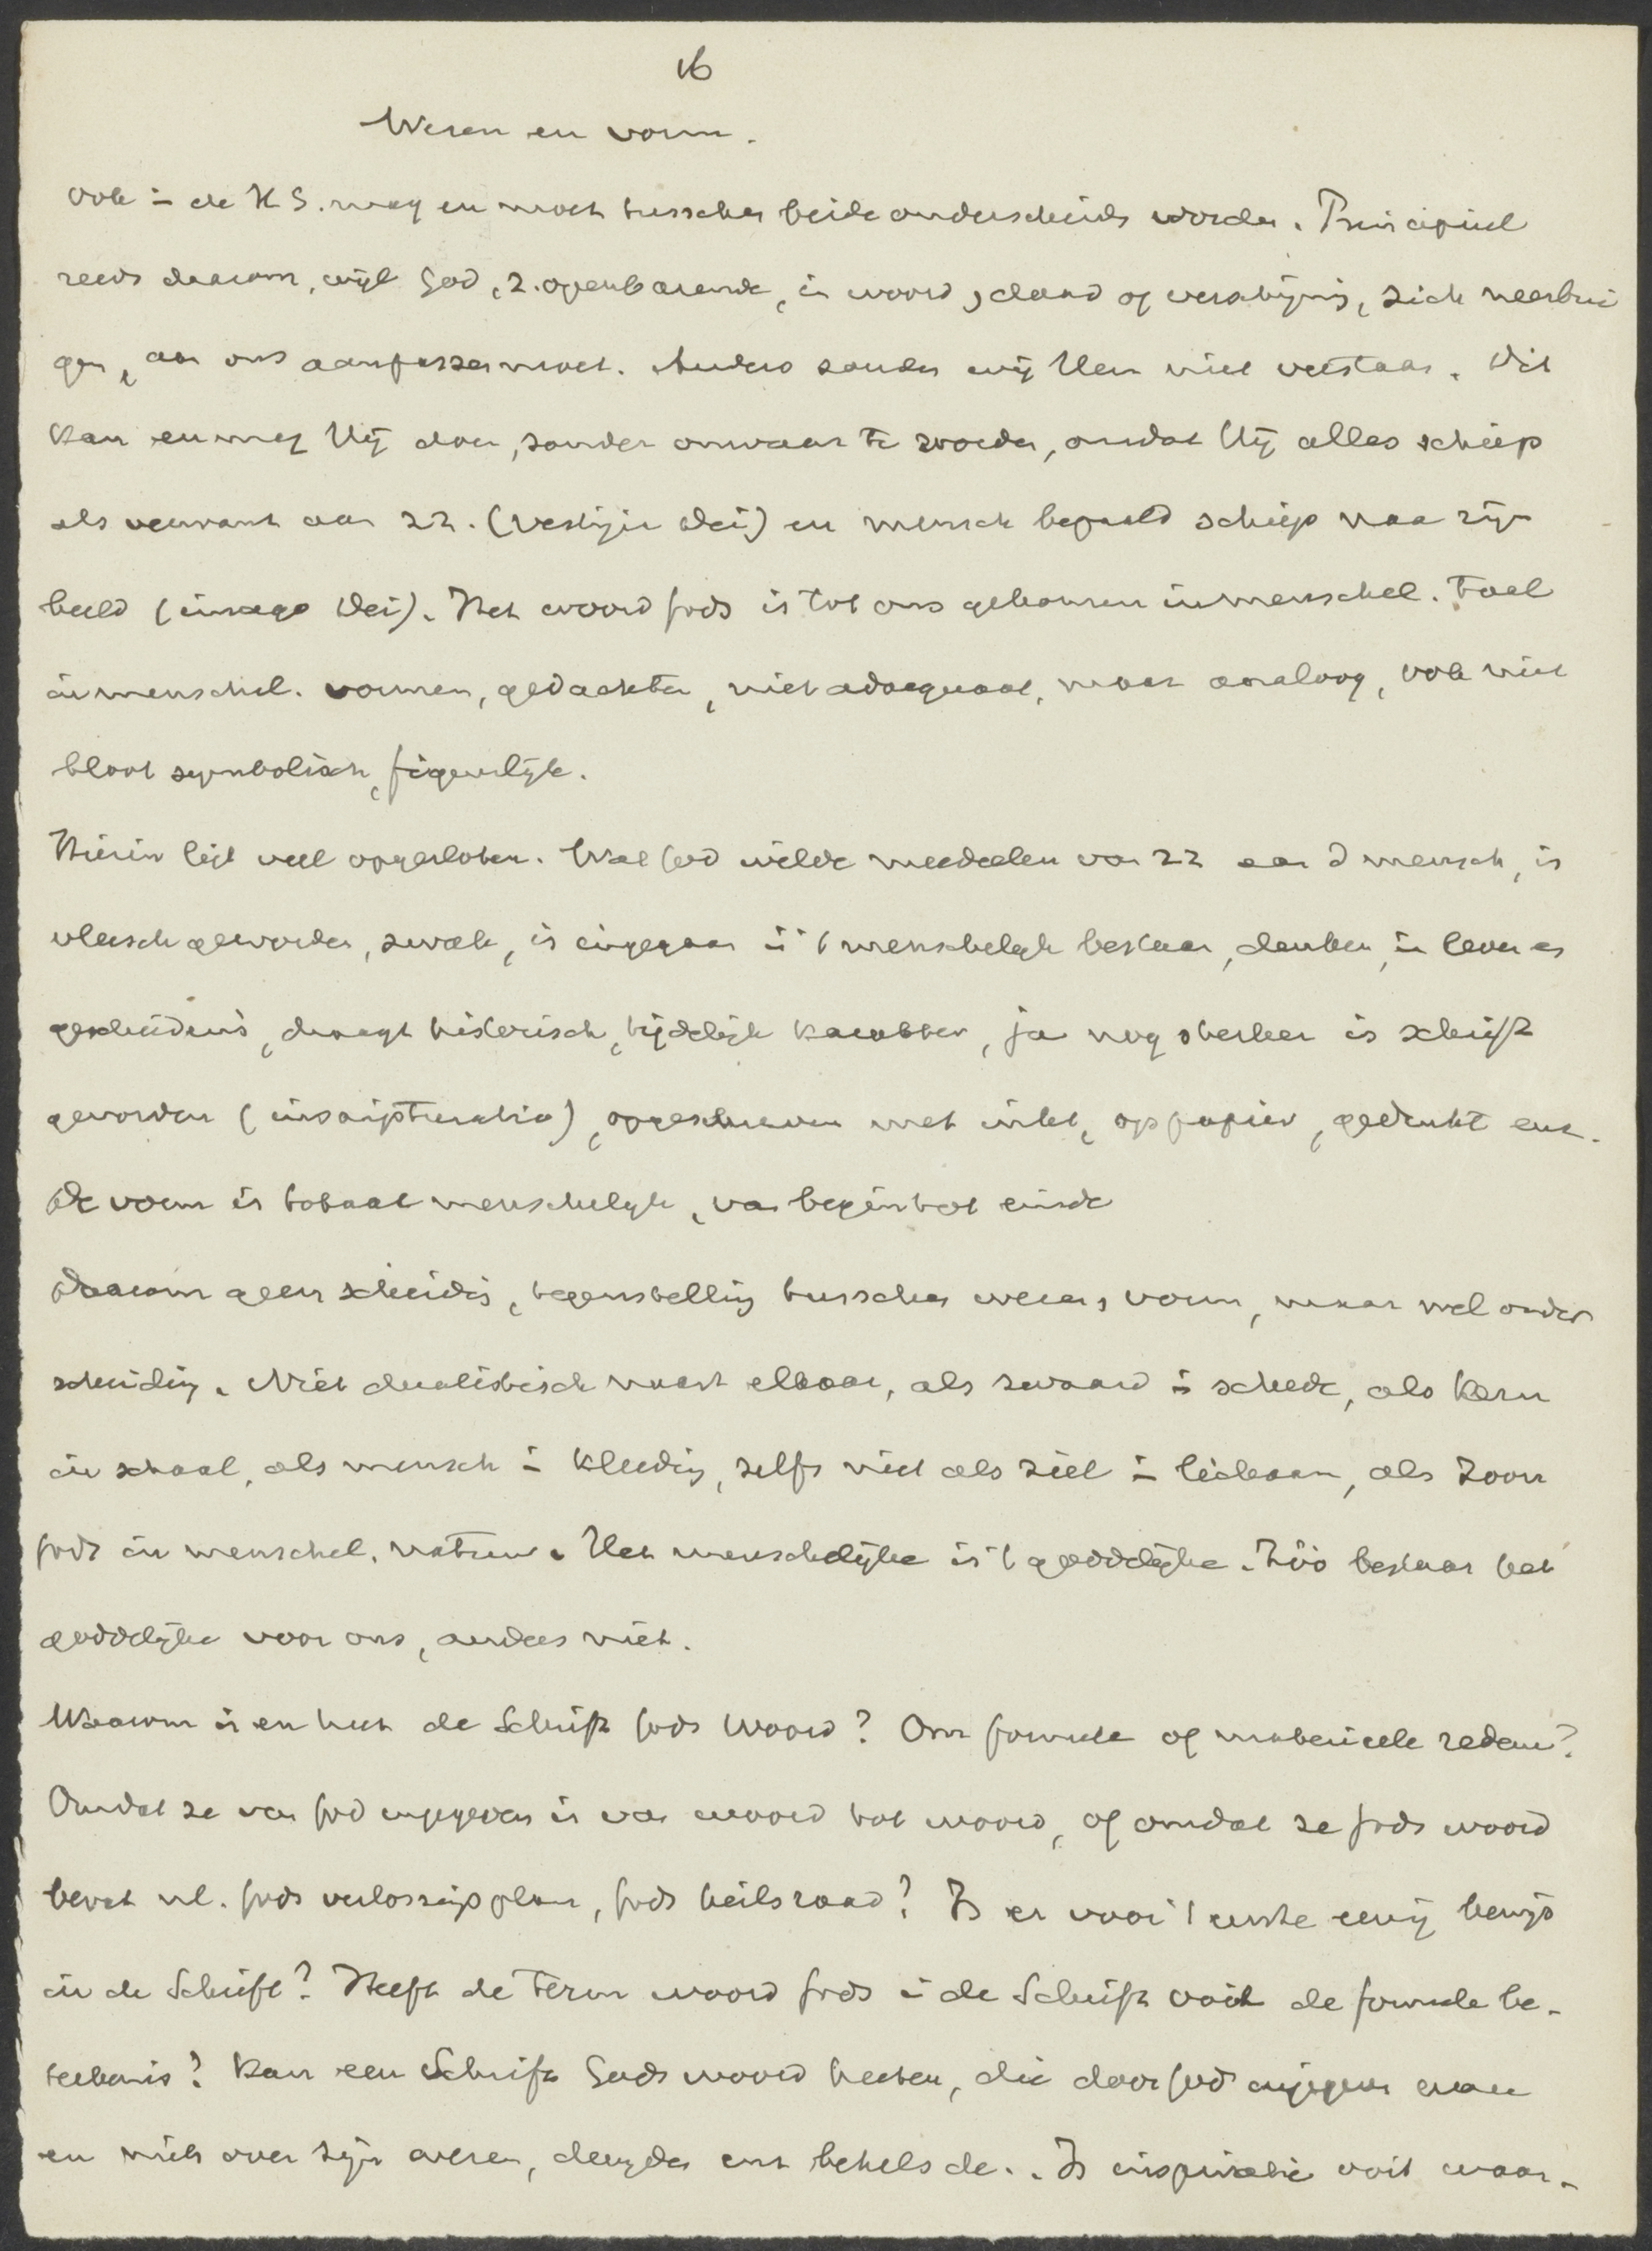 16
Wezen en vorm.
Ook in de H S. mag en moet tusschen beide onderscheiden worden. Principieel
reeds daarom, wijl God, z. openbarende, in woord, daad of verschijning, zich neerbui
gen, aan ons aanpassen moet. Anders zouden wij Hem niet verstaan. Dit
kan en mag Hij doen, zonder onwaar te worden, omdat Hij alles schiep
als verwant aan zz. (vestigia Dei) en mensch bepaald schiep naar zijn
beeld (imago Dei). Het woord Gods is tot ons gekomen in menschel. taal
in menschel. vormen, gedachten, niet adaequaat, maar analoog, ook niet
bloot symbolisch, figuurlijk.
Hierin ligt veel opgesloten. Wat God wilde meedeelen van zz aan d mensch, is
vleesch geworden, zwak, is ingegaan in 't menschelijk bestaan, denken, in leven en
geschiedenis, draagt historisch, tijdelijk karakter, ja nog sterker is schrift
geworden (inscripturatio), opgeschreven met inkt, op papier, gedrukt enz.
De vorm is totaal menschelijk, van begin tot einde
Daarom geen scheiding, tegenstelling tusschen wezen, vorm, maar wel onder
scheiding. Niet dualistisch naast elkaar, als zwaard in scheede, als kern
in schaal, als mensch in kleeding, zelfs niet als ziel in lichaam, als Zoon
Gods in menschel. natuur. Het menschelijke is 't goddelijke. Zóó bestaat het
goddelijke voor ons, anders niet.
Waarom is en heet de Schrift Gods Woord? Om formeele of materieele reden?
Omdat ze van God ingegeven is van woord tot woord, of omdat ze Gods woord
bevat nl. Gods verlossingsplan, Gods heilsraad? Is er voor 't eerste eenig bewijs
in de Schrift? Heeft de term woord Gods in de Schrift ooit de formeele be-
teekenis? Kan een Schrift Gods woord heeten, die door God ingegeven ware
en niets over zijn wezen, deugden enz behelsde. . Is inspiratie ooit waar-